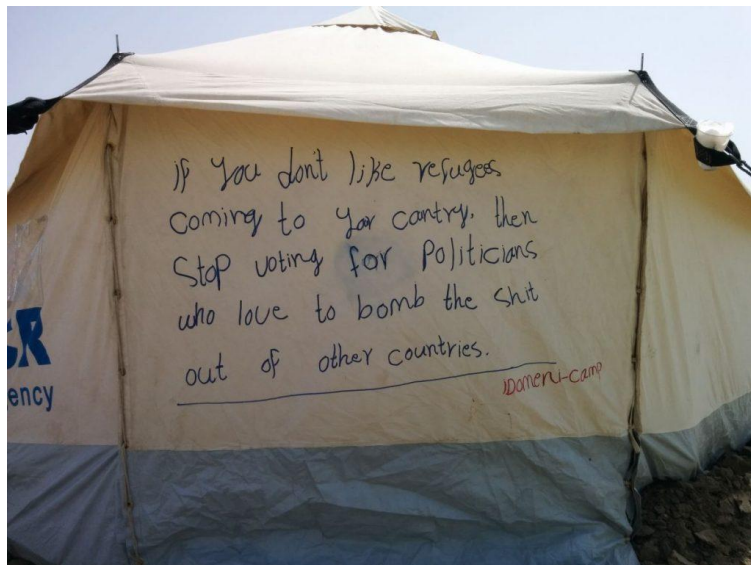 if you don't like refugees
coming to yor cantry, then
Stop voting for Politicians
who love to bomb the shit
out of other countries.
IDomeni-camp
CR
ency